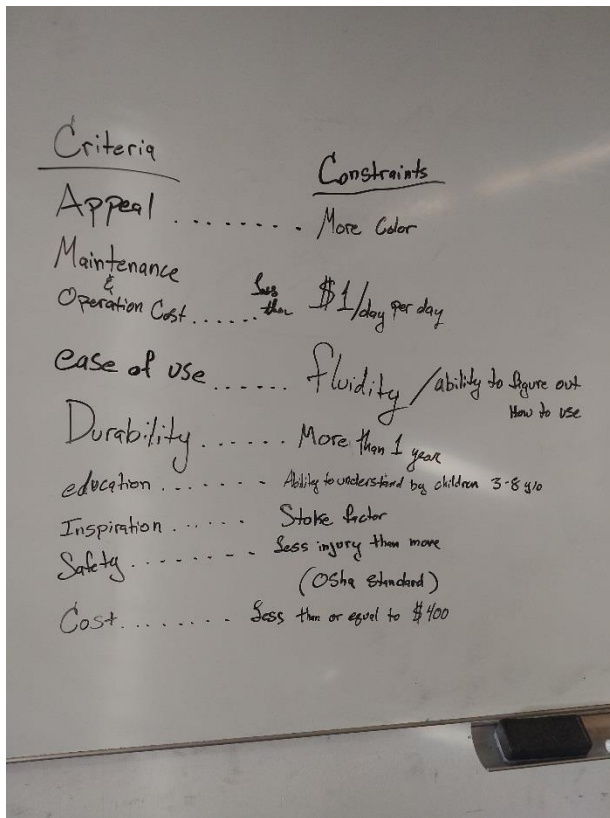 Criteria
Constraints
Appeal ........ More Color
Maintenance
&
Operation Cost ...... Less than $1/day per day
ease of use ...... fluidity / ability to figure out
How to use
Durability ...... More than 1 year
education ....... Ability to understand by children 3-8 y/o
Inspiration ...... Stoke factor
Safety ........ Less injury than more
(Osha Standard)
Cost ........ Less than or equal to $400